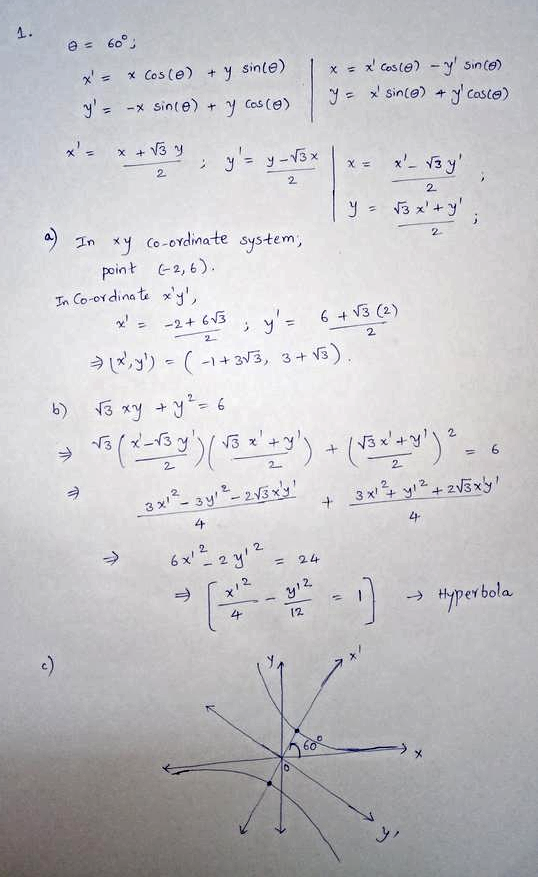 1.
θ = 60°;
x' = x cos(θ) + y sin(θ) | x = x' cos(θ) - y' sin(θ)
y' = -x sin(θ) + y cos(θ) | y = x' sin(θ) + y' cos(θ)
x' = (x + √3 y)/2 ; y' = (y - √3 x)/2 | x = (x' - √3 y')/2 ;
y = (√3 x' + y')/2 ;
a) In xy co-ordinate system,
point (-2, 6).
In Co-ordinate x'y',
x' = (-2 + 6√3)/2 ; y' = (6 + √3 (2))/2
⇒ (x', y') = (-1 + 3√3, 3 + √3).
b) √3 xy + y² = 6
⇒ √3 ((x' - √3 y')/2) ((√3 x' + y')/2) + ((√3 x' + y')/2)² = 6
⇒ (3x'² - 3y'² - 2√3 x'y')/4 + (3x'² + y'² + 2√3 x'y')/4
⇒ 6x'² - 2y'² = 24
⇒ [x'²/4 - y'²/12 = 1] → Hyperbola
c)
y
x'
60°
x
0
y'